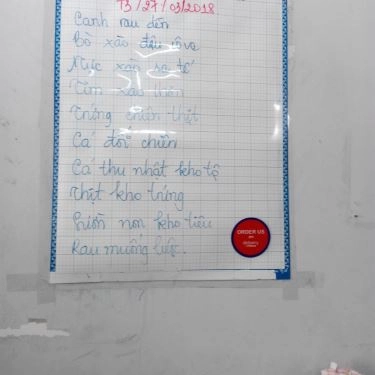 T3/27/03/2018
Canh rau dền
Bò xào đậu cove
Mực xào sa tế
Tim xào thơm
Trứng chiên thịt
Cá đối chiên
Cá thu nhật kho tộ
Thịt kho trứng
non kho tiêu
Rau muống luộc.
ORDER US